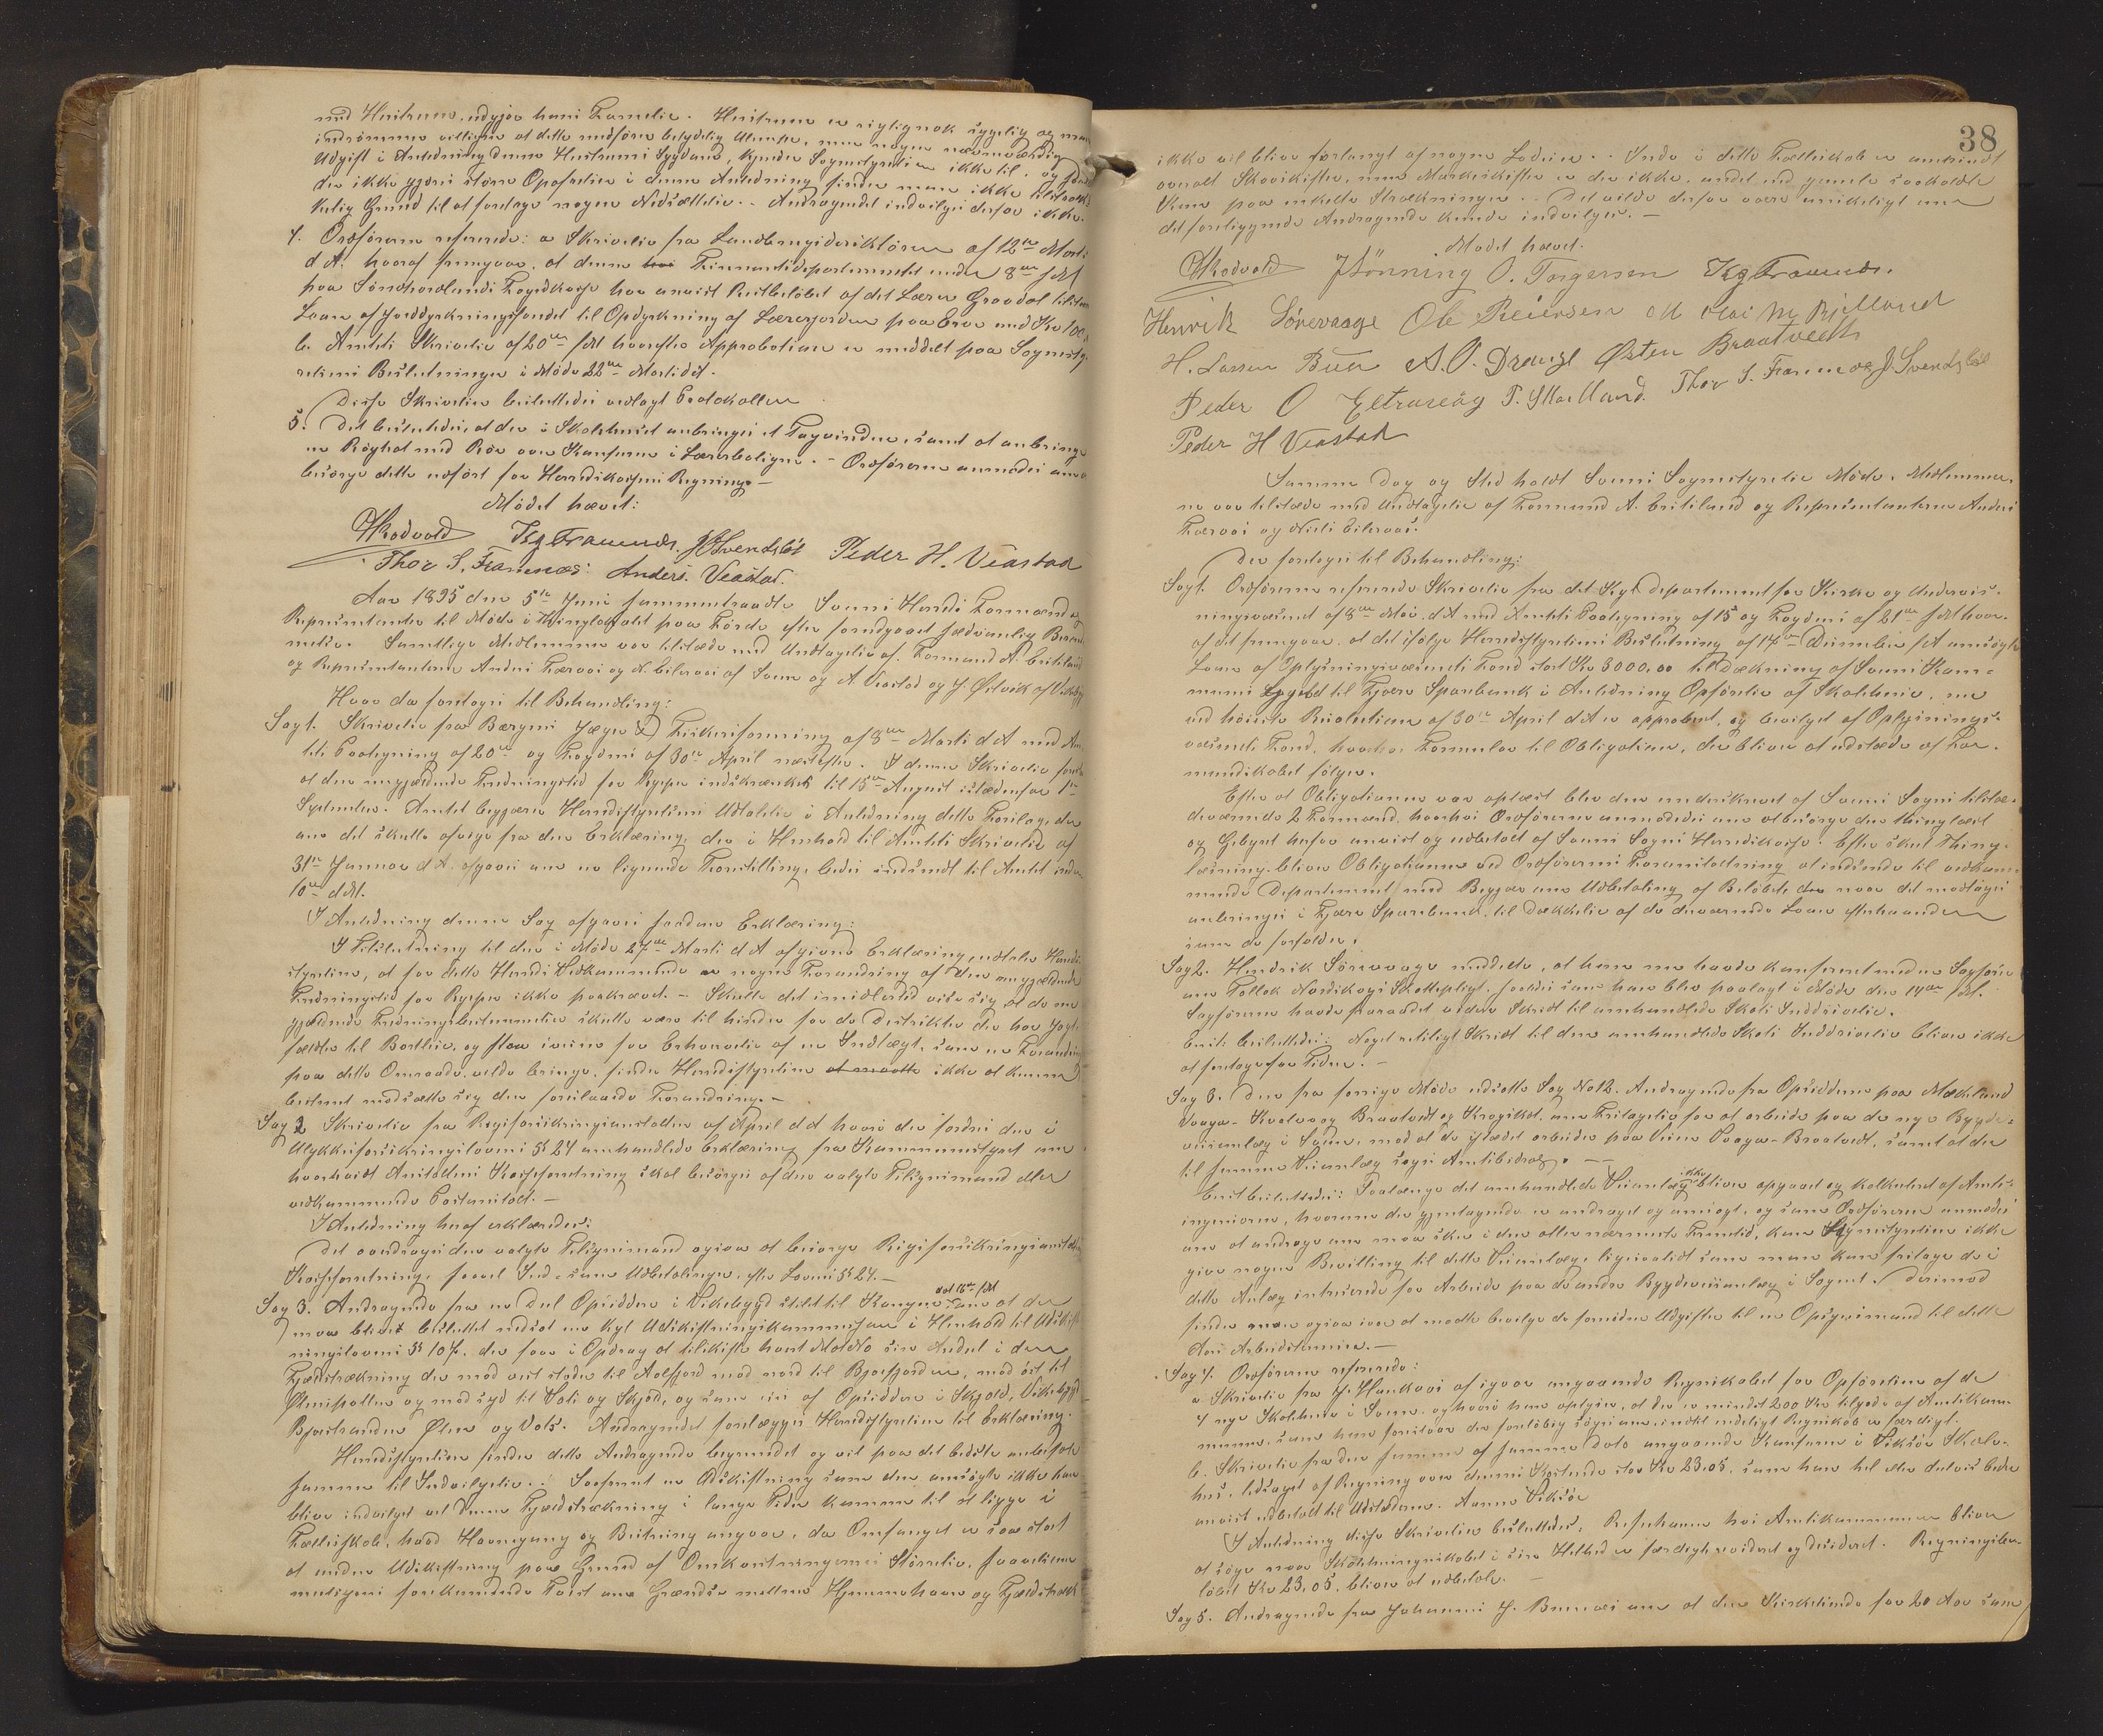 med Hustruen udgjør hans Familie. Hustruen er rigtignok sygelig og man
indrømmer villigen at dette medfører betydelig Ulempe, men nogen nævneværdig
Udgift i Anledning denne Hustrues Sygdom, kjender Sognestyrelsen ikke til, og
der ikke gjøres større Opofrelser i denne Anledning finder man ikke tilstræk-
kelig Grund til at foretage nogen Nedsættelse. - Andragendet indvilges derfor ikke.
4. Ordføreren refererede: a Skrivelse fra Landbrugsdirektøren af 12te Marts
d A. hvoraf fremgaar, at denne Finantsdepartementet under 8de s M
paa Søndhordlands Fogedkasse har anvist Restbeløbet af det Lærer Graadal tilstaaede
Laan af Jorddyrkningsfondet til Opdyrkning af Lærerjorden paa med Kr 100,
b. Amtets Skrivelse af 20de s M hvorefter Approbation er meddelt paa Sognesty-
relsens Beslutninger i Møde 22de Marts d A.
Disse Skrivelser besluttedes vedlagt Protokollen
5. Det besluttedes, at der i Skolehuset anbringes et Tagvindue, samt at anbringe
en Røghat med Rør over Kamferen i Lærerboligen. - Ordføreren anmodes om a
besørge dette udført for Herredskassens Regning. -
Mødet hævet:
Thor S. Framnæs Anders. Veastad. Peder H. Veastad
Aar 1895 den 5te Juni sammentraadte Sveens Herreds Formænd og
Repræsentanter til Møde i Thinglokalet paa Førde efter forudgaaet sædvanlig Beram-
melse. Samtlige Medlemmer var tilstede med Undtagelse af Formand A.
og Repræsentanterne Anders og N. Eileraas af Sveen og A. Veastad og J. Østvik af Vikebygd
Hvor da foretoges til Behandling:
Sag 1. Skrivelse fra Bergens Jæger & Fiskeriforening af 8de Marts d A med Am-
tets Paategning af 20de og Fogdens af 30te April næstefter. I denne Skrivelse
at den nugjældende Fredningstid for Ryper indskrænkes til 15de August istedenfor 1ste
September. Amtet begjærer Herredsstyrelsens Udtalelse i Anledning dette Forslag, der
om det skulle afvige fra den Erklæring, der i Henhold til Amtets Skrivelse af
31te Januar d A. afgaves om en lignende Forestilling, bedes indsendt til Amtet inden
10de d M.
I Anledning denne Sag afgaves saadan Erklæring:
I Tilslutning til den i Møde 27de Marts d A afgivne Erklæring, udtaler Herreds-
styrelsen, at for dette Herreds Vedkommende er nogen Forandring af den nugjældende
Fredningstid for Ryper ikke paakrævet. - Skulle det imidlertid vise sig at de nu
gjældende Fredningsbestemmelser skulle være til hinder for de Distrikter der har Jagt-
felter til Bortleie, og saaledes for Erhvervelse af en Indtægt, som en Forandring
paa dette Omraade vilde bringe, finder Herredsstyrelsen ikke at kunne
bestemt modsætte sig den foreslaaede Forandring. -
Sag 2 Skrivelse fra Rigsforsikringsanstalten af April d A hvori der fordres den i
Ulykkesforsikringslovens § 24 omhandlede Erklæring fra Kommunestyret om
hvorvidt Anstaltens Kasseforretning skal besørges af den valgte Tilsynsmand eller
vedkommende Poståbneri. -
I Anledning heraf erklæredes:
Det overdrages den valgte Tilsynsmand ogsaa at besørge Rigsforsikringsanstaltens
Kasseforretning, saavel Ind- som Udbetalinger, efter Lovens § 24. -
Sag 3. Andragende fra en Del Opsiddere i Vikebygd stilet til Kongen dat 18de s M om at der
maa blive besluttet nedsat en kgl Udskiftningskommission i Henhold til Udskift-
ningslovens § 107, der faar i Opdrag at tilskifte hvert sin Andel i den
Fjeldstrækning der mod vest støder til Aalfjord mod nord til Bjoafjorden, mod øst til
Ølenspollen og mod syd til Vats og Skjold, og som eies af Opsiddere i Skjold, Vikebygd
Bjoastranden Ølen og Vats. Andragendet forelægges Herredsstyrelsen til Erklæring.
Herredsstyrelsen finder dette Andragende begrundet og vil paa det bedste anbefale
samme til Indvilgelse. Saafremt en Udskiftning som den ansøgte ikke kan
blive indvilget vil denne Fjeldstrækning i lange Tider komme til at ligge i
Fællesskab, hvad Havnegang og Beitning angaar, da Omfanget er saa stort
at anden Udskiftning paa Grund af Omkostningernes Størrelse, foruden
muligens forekommende Tvist om Grændse mellem Hjemmehavn og Fjeldstræk
38
ikke vil blive forlangt af nogen Lodeier. Inde i dette Fællesskab er omtrent
overalt Skovskifter, men Markeskifter er der ikke, undtagen gamle saakaldte
Kun paa enkelte Strækninger. - Det vilde derfor være ønskeligt om
det foreliggende Andragende kunde indvilges. -
Mødet hævet.
J Sønning O. Torgersen
Henrik Sørevaage Ole Reiersen
H. Larsen Bua A. O. Drange Østen Braatvedt
Peder O Eltravåg Thor S. Framnæs J. Svendsbøe
Peder H Veastad
Samme Dag og Sted holdt Sveens Sognestyrelse Møde. Medlemmer-
ne var tilstede med Undtagelse af Formand A. og Repræsentanterne Anders
og Niels Eileraas.
Der foretoges til Behandling:
Sag 1. Ordføreren refererede Skrivelse fra det Kgl. departement for Kirke og Undervis-
ningsvæsenet af 8de Mai d A med Amtets Paategning af 15 og Fogdens af 21de s M hvor-
af det fremgaar, at det ifølge Herredsstyrelsens Beslutning af 14de December f A ansøgte
Laan af Oplysningsvæsenets Fond stort Kr 3000,00 til Dækning af Sveens Kom-
munes Gjeld til Fjære Sparebank i Anledning Opførelse af Skolehuse, nu
ved høieste Resolution af 30te April d A er approberet, og bevilget af Oplysnings-
væsenets Fond, hvorhos Formular til Obligation, der bliver at udstæde af For-
mandskabet følger.
Efter at Obligationen var oplæst blev den underskrevet af Sveens Sogns tilstæ-
deværende 2 Formænd, hvorhos Ordføreren anmodedes om at besørge den thinglæst
og Gebyret herfor anvist og udbetalt af Sveens Sogns Herredskasse. Efter skeet Thing-
læsning bliver Obligationen ved Ordførerens Foranstaltning at indsende til vedkom-
mende Departement med Begjær om Udbetaling af Beløbet, der naar det modtages
anbringes i Fjære Sparebank, til Dækkelse af de derværende Laan efterhaanden
som de forfalder.
Sag 2. Hendrik Sørevaage meddelte, at han nu havde konfereret med en Sagfører
om Tollak Nordskogs Skattepligt, saaledes som han blev paalagt i Møde den 14de s M.
Sagføreren havde fraraadet videre Skridt til omhandlede Skats Inddrivelse.
Enst. besluttedes: Noget retsligt Skridt til den omhandlede Skats Inddrivelse bliver ikke
at foretage for Tiden. -
Sag 3. Den fra forrige Møde udsatte Sag No 12. Andragende fra Opsidderne paa
Vaage - og Braatvedt og om Fritagelse for at arbeide paa de nye Bygde-
veianlæg i Sveen, mod at de istedet arbeider paa Veien Vaage-Braatvedt, samt at der
til samme Veianlæg søges Amtsbidrag. -
Enst besluttedes: Saalænge det omhandlede Veianlæg ikke bliver opgaaet og kalkuleret af Amts-
ingeniøren, hvorom der gjentagende er andraget og ansøgt, og som Ordføreren anmodes
om at andrage om maa ske i den aller nærmeste Fremtid, kan Sognestyrelsen ikke
give nogen Bevilling til dette Veianlæg, ligesaalidt som man kan fritage de i
dette Anlæg interesserede for Arbeide paa de andre Bygdeveianlæg i Sognet. Derimod
finder man ogsaa at maatte bevilge de fornødne Udgifter til en Opsynsmand til dette
Aars Arbeidssum. -
Sag 4. Ordføreren refererede:
a Skrivelse fra J. Haukaas af igaar angaaende Regnskabet for Opførelsen af de
4 nye Skolehuse i Sveen, og hvori han oplyser, at der er mindst 200 Kr tilgode af Amtskom-
munen, som han foreslaar der foreløbig søges om, indtil endeligt Regnskab er færdigt.
b. Skrivelse fra den samme af samme Dato angaaende Kamferen i Viksøe Skole-
hus, ledsaget af Regning over dennes Kostende stor Kr 23,05, som han hel eller delvis beder
anvist udbetalt til Udstederen. Aamund Viksøe
I Anledning disse Skrivelser besluttedes: Refusionen hos Amtskommunen bliver
at søge naar Skolebygningsregnskabet i sin Helhed er færdigt revideret og decideret. Regningsbe-
løbet Kr 23,05, bliver at udbetale.
Sag 5. Andragende fra Johannes J. om at den Kirketiende for 20 Aar som